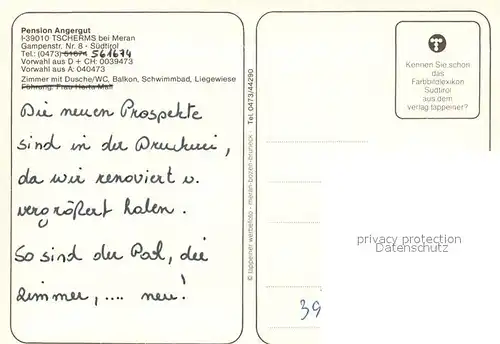 Pension Angergut
I-39010 TSCHERMS bei Meran
Gampenstr. Nr. 8 - Südtirol
Tel.: (0473) 51674 561674
Vorwahl aus D + CH: 0039473
Vorwahl aus A: 040473
Zimmer mit Dusche/WC, Balkon, Schwimmbad, Liegewiese
Führung: Frau Herta Matt
Die neuen Prospekte
sind in der Druckerei,
da wir renoviert u.
vergrößert haben.
So sind der Pool, die
Zimmer, .... neu!
© tappeiner werbefoto - meran-bozen-bruneck - Tel. 0473/44290
Kennen Sie schon
das
Farbbildlexikon
Südtirol
aus dem
verlag tappeiner?
privacy protection
VINTAGE-POSTCARD.COM
39